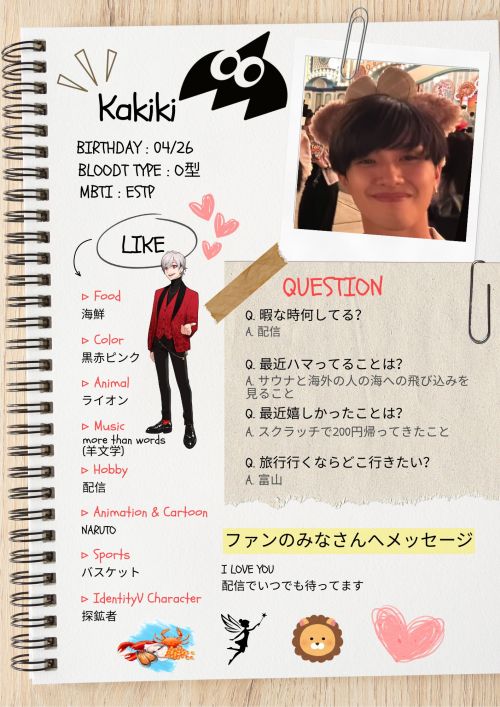 Kakiki
BIRTHDAY : 04/26
BLOODT TYPE : O型
MBTI : ESTP
LIKE
Food
海鮮
Color
黒赤ピンク
Animal
ライオン
Music
more than words
(羊文学)
Hobby
配信
Animation & Cartoon
NARUTO
Sports
バスケット
IdentityV Character
探鉱者
QUESTION
Q. 暇な時何してる?
A. 配信
Q. 最近ハマってることは?
A. サウナと海外の人の海への飛び込みを
見ること
Q. 最近嬉しかったことは?
A. スクラッチで200円帰ってきたこと
Q. 旅行行くならどこ行きたい?
A. 富山
ファンのみなさんへメッセージ
I LOVE YOU
配信でいつでも待ってます